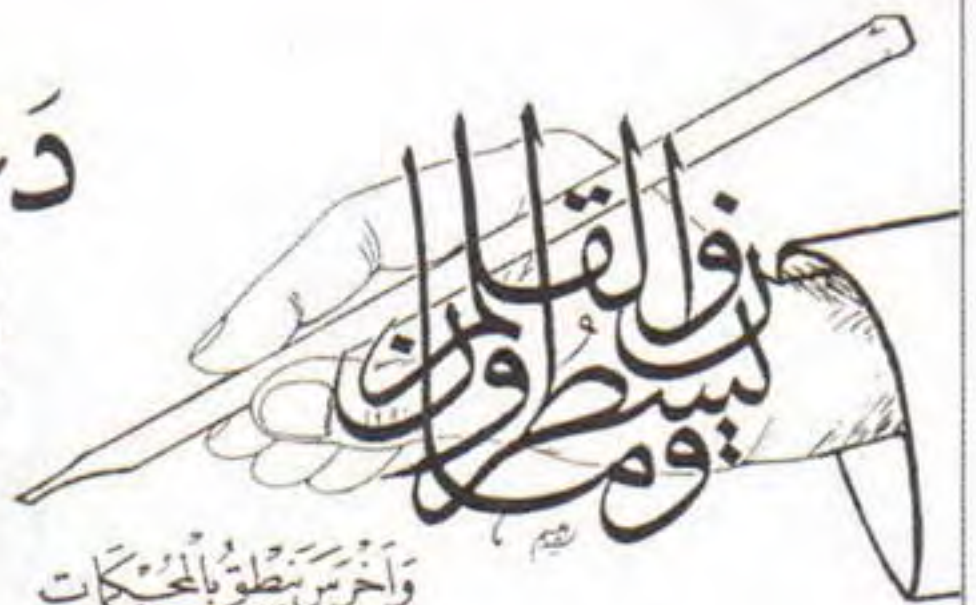 دَ
ن والقلم
وما يسطرون
وَأَخْرَسَ يَنْطِقُ بِالْمُحْكَمَات